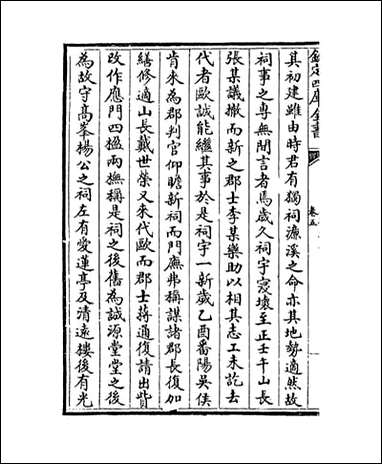 欽定四庫全書
卷五
其初建雖由時君有獨祠濂溪之命亦其地勢適然故
祠事之專無間言者焉歲久祠宇寖壞至正壬午山長
張某議撤而新之郡士李某樂助以相其志工未訖去
代者歐誠能繼其事於是祠宇一新歲乙酉番陽吳侯
肯來為郡判官仰瞻新祠而門廡弗稱謀諸郡長復加
繕修適山長戴世榮又来代歐而郡士蔣通復請出貲
改作應門四楹兩廡稱是祠之後舊為誠源堂堂之後
為故守高峯楊公之祠左有愛蓮亭及清遠樓後有光